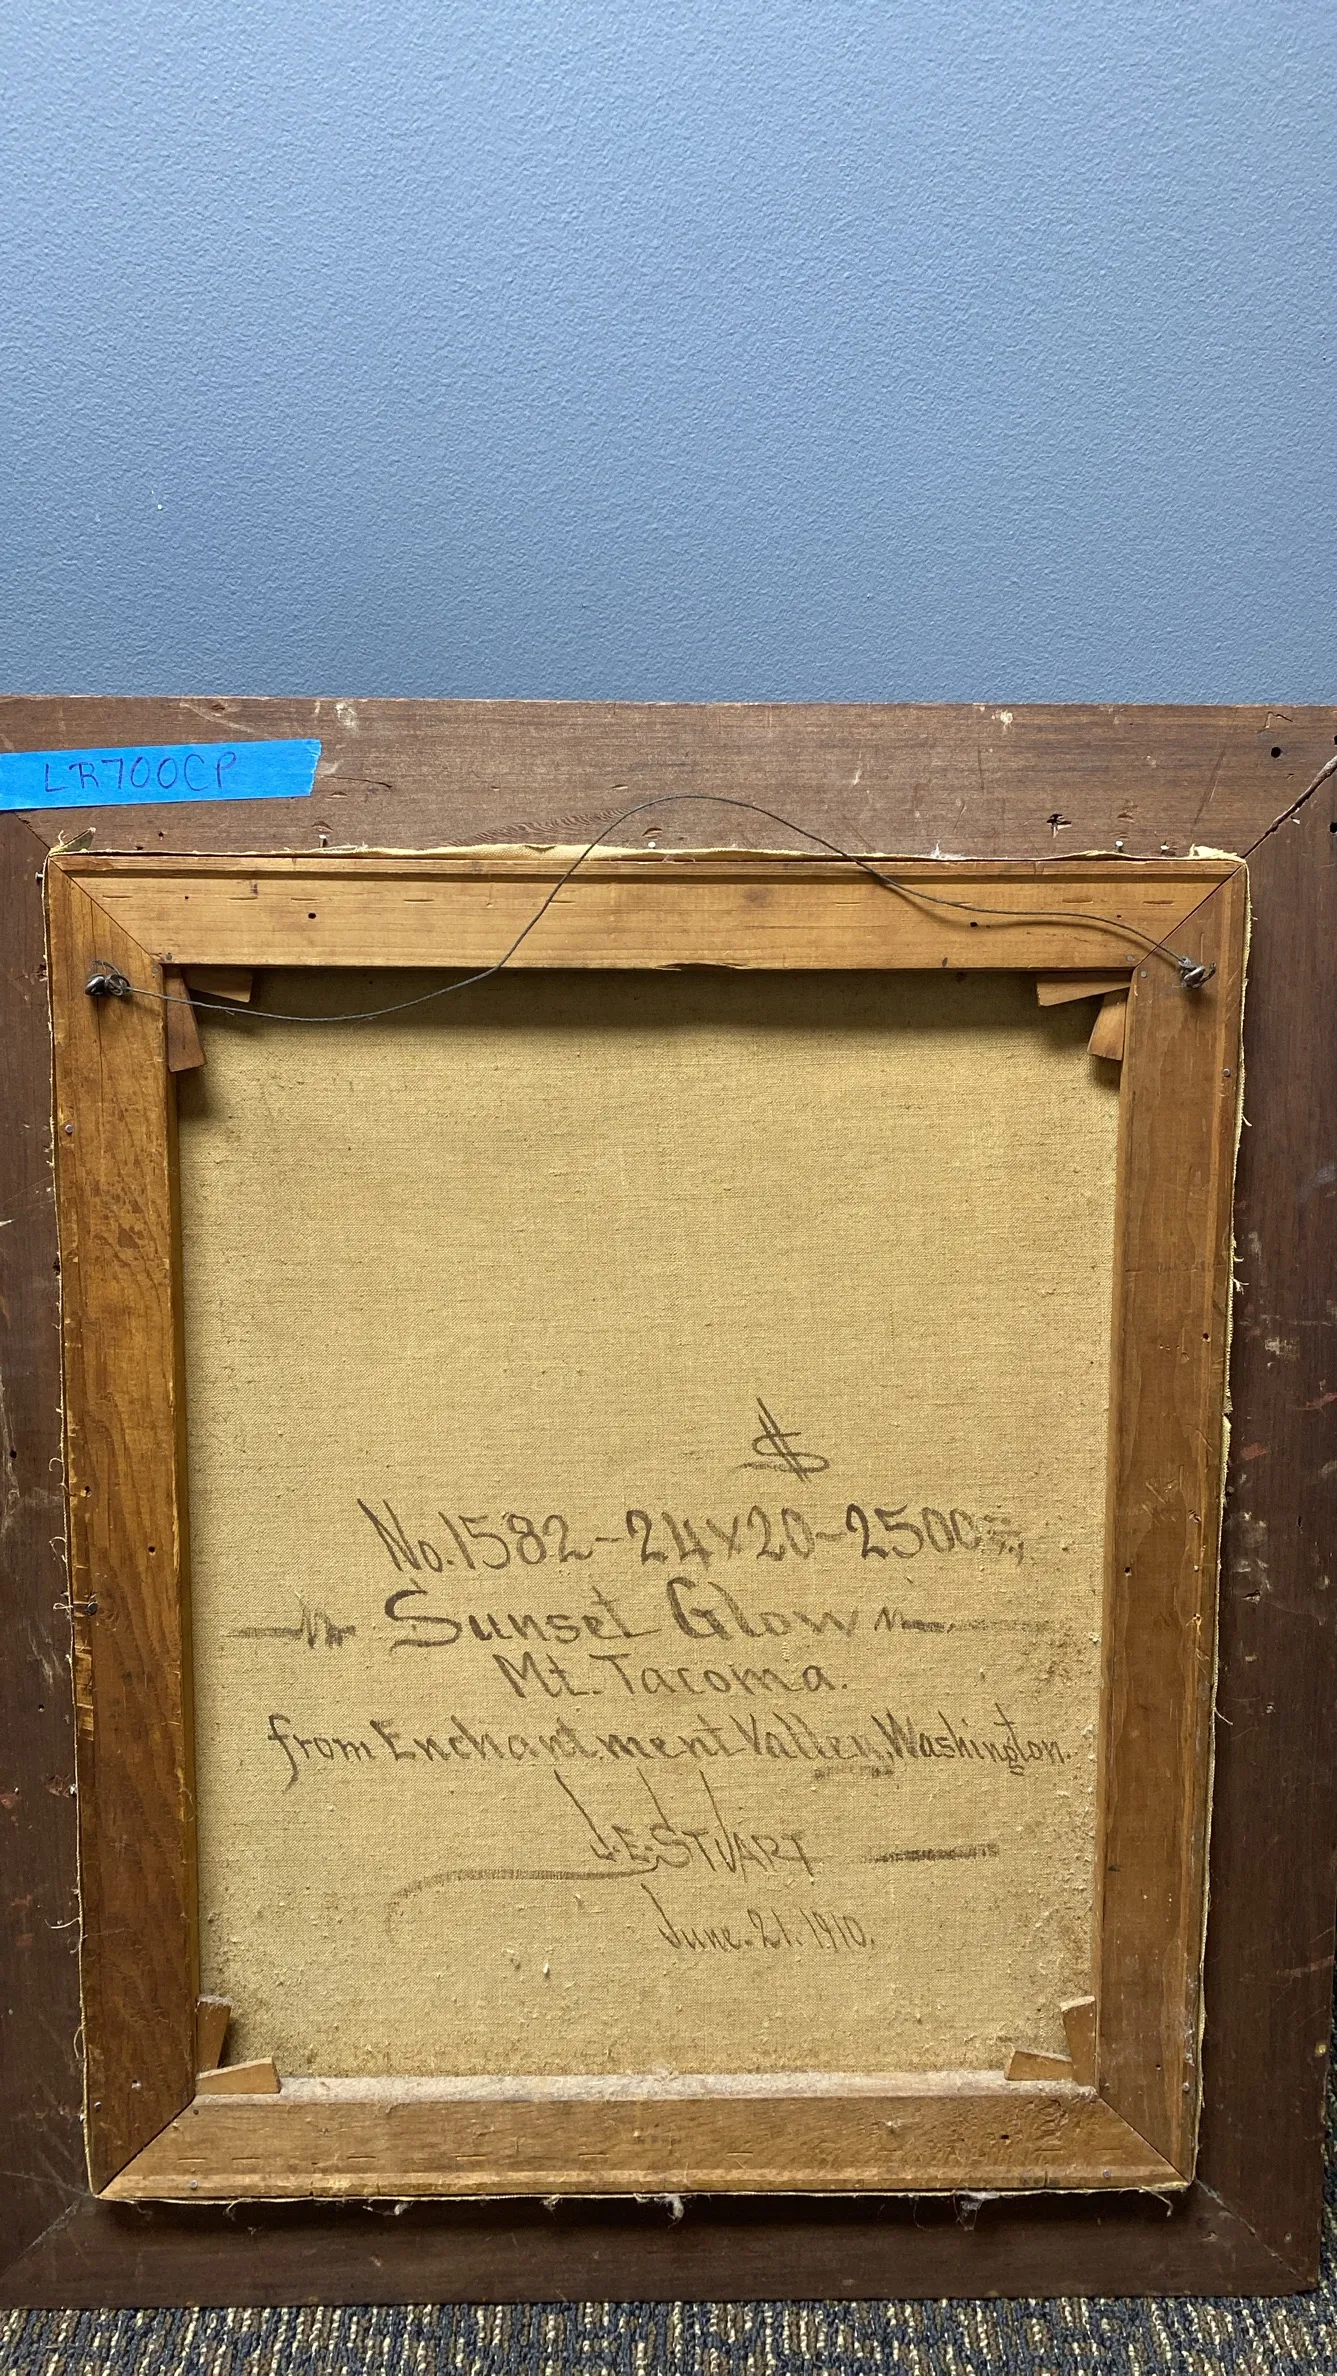 LR700CP
$
No. 1582 - 24 x 20 - 2500
Sunset Glow
Mt. Tacoma.
from Enchantment Valley, Washington.
J.E. STUART
June. 21. 1910.